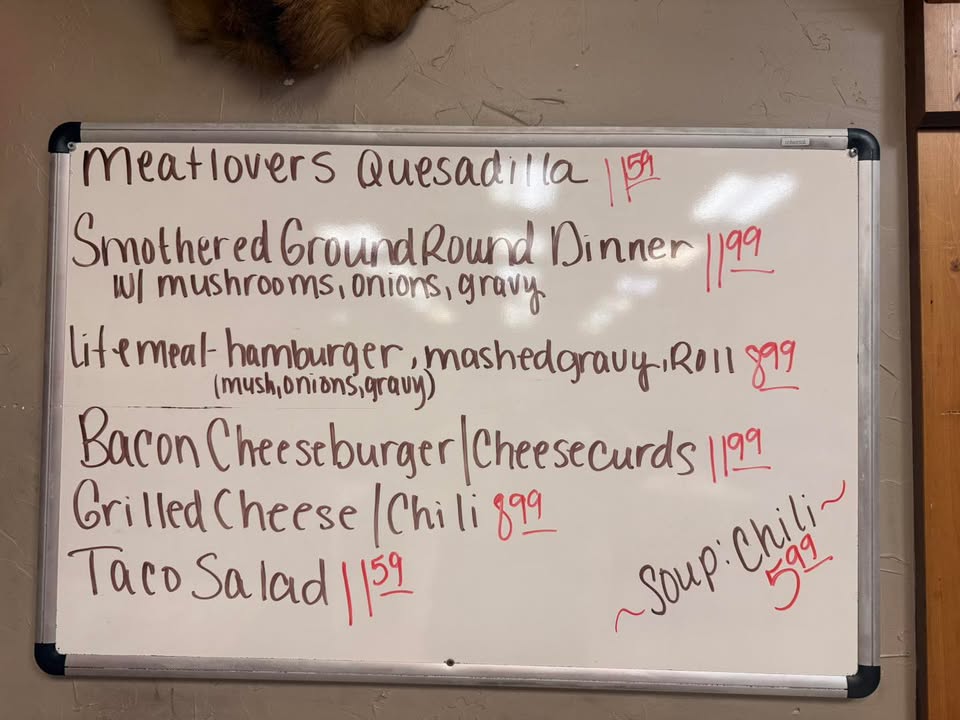 Meatlovers Quesadilla 11 59
Smothered Ground Round Dinner 11 99
w/ mushrooms, onions, gravy
lite meal- hamburger, mashed gravy, Roll 8 99
(mush, onions, gravy)
Bacon Cheeseburger/Cheesecurds 11 99
Grilled Cheese/Chili 8 99
Taco Salad 11 59
~ Soup: Chili ~
5 99